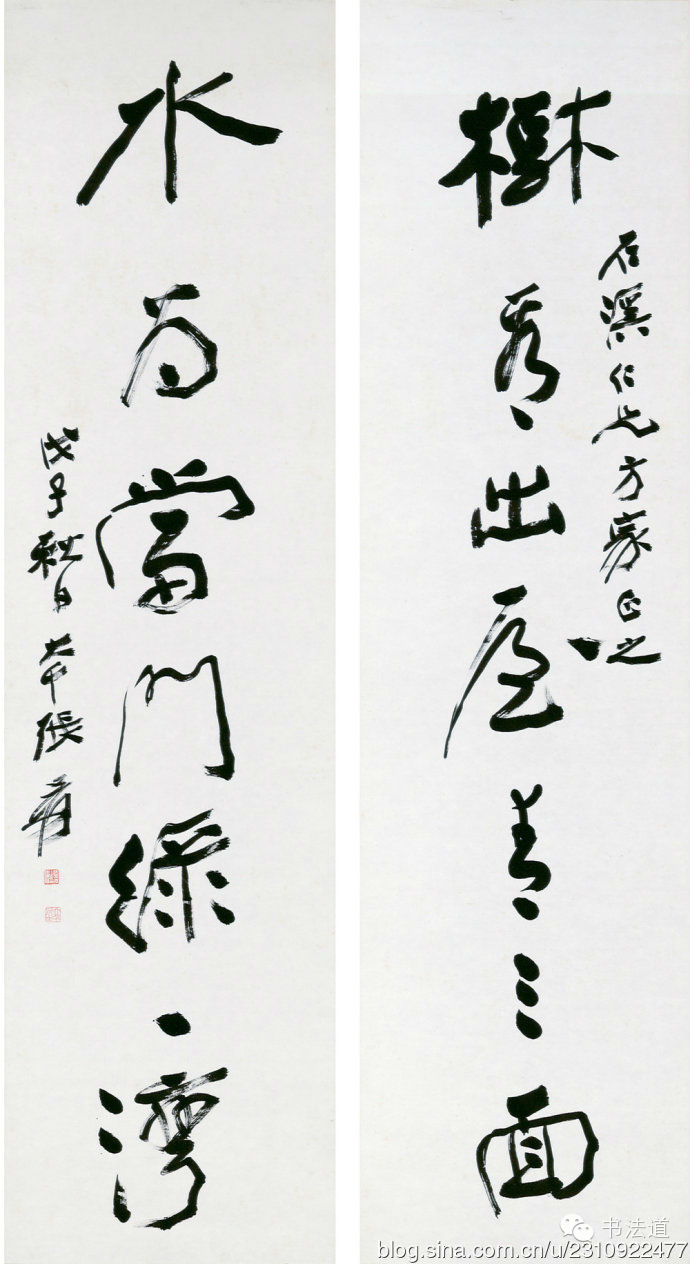 樹出青三面
溪仁兄方家正之
水為當門綠一灣
戊子秋日大千張爰
书法道
blog.sina.com.cn/u/2310922477